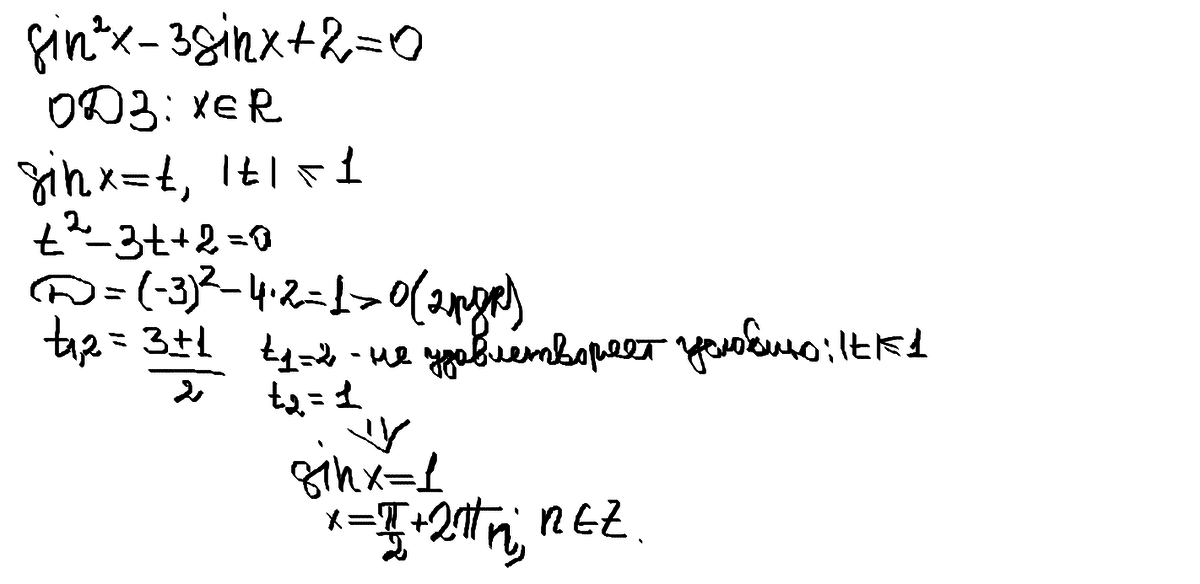 sin²x - 3sinx + 2 = 0
ОДЗ: x ∈ R
sin x = t, |t| ≤ 1
t² - 3t + 2 = 0
D = (-3)² - 4·2 = 1 > 0 (2рдк)
t₁,₂ = (3±1)/2 t₁ = 2 - не удовлетворяет условию: |t| ≤ 1
t₂ = 1
⇓
sin x = 1
x = π/2 + 2πn, n ∈ Z.